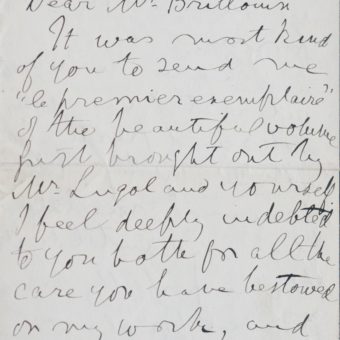 Dear Mr. Brillouin
It was most kind
of you to send me
"le premier exemplaire"
of the beautiful volume
just brought out by
Mr. Lugol and yourself
I feel deeply indebted
to you both for all the
care you have bestowed
on my work, and